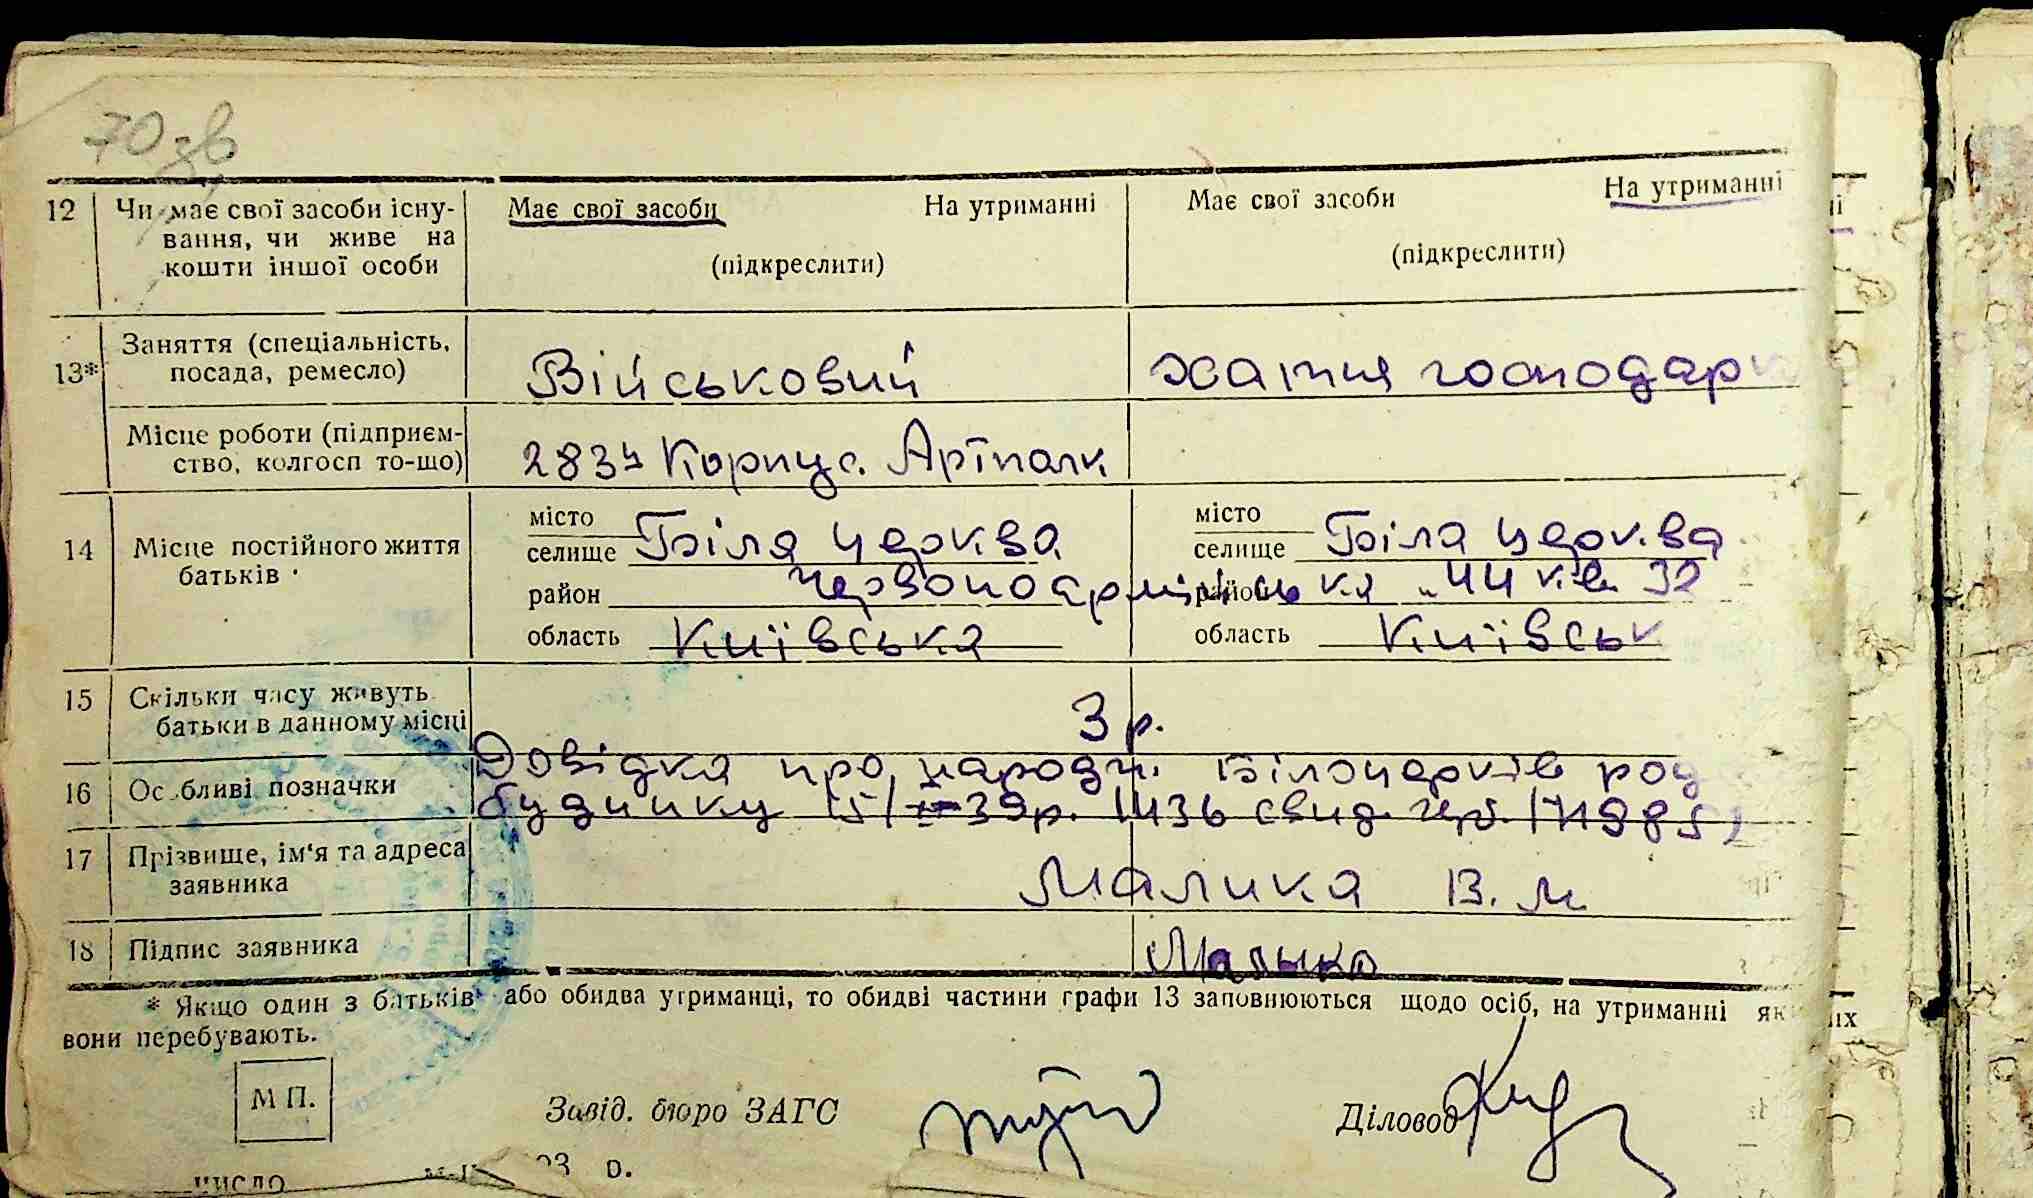 70 зв
12 Чи має свої засоби існу- Має свої засоби На утриманні Має свої засоби На утриманні
вання, чи живе на
кошти іншої особи (підкреслити) (підкреслити)
13* Заняття (спеціальність,
посада, ремесло) Військовий хатня господарк
Місце роботи (підприєм-
ство, колгосп то-що) 2834 Корпус. Артполк
14 Місце постійного життя
батьків
місто місто
селище Біла церква селище Біла церква
район Червоноармійська 44 кв 32
область Київська область Київськ
15 Скільки часу живуть
батьки в данному місці 3 р.
16 Особливі позначки Довідка про народж. Білоцерків род
будинку 15/ 39р. 1436 свид.
17 Прізвище, ім'я та адреса
заявника Малика В. М
18 Підпис заявника Малыка
* Якщо один з батьків або обидва утриманці, то обидві частини графи 13 заповнюються щодо осіб, на утриманні яких
вони перебувають.
М П. Завід. бюро ЗАГС Діловод
число р.